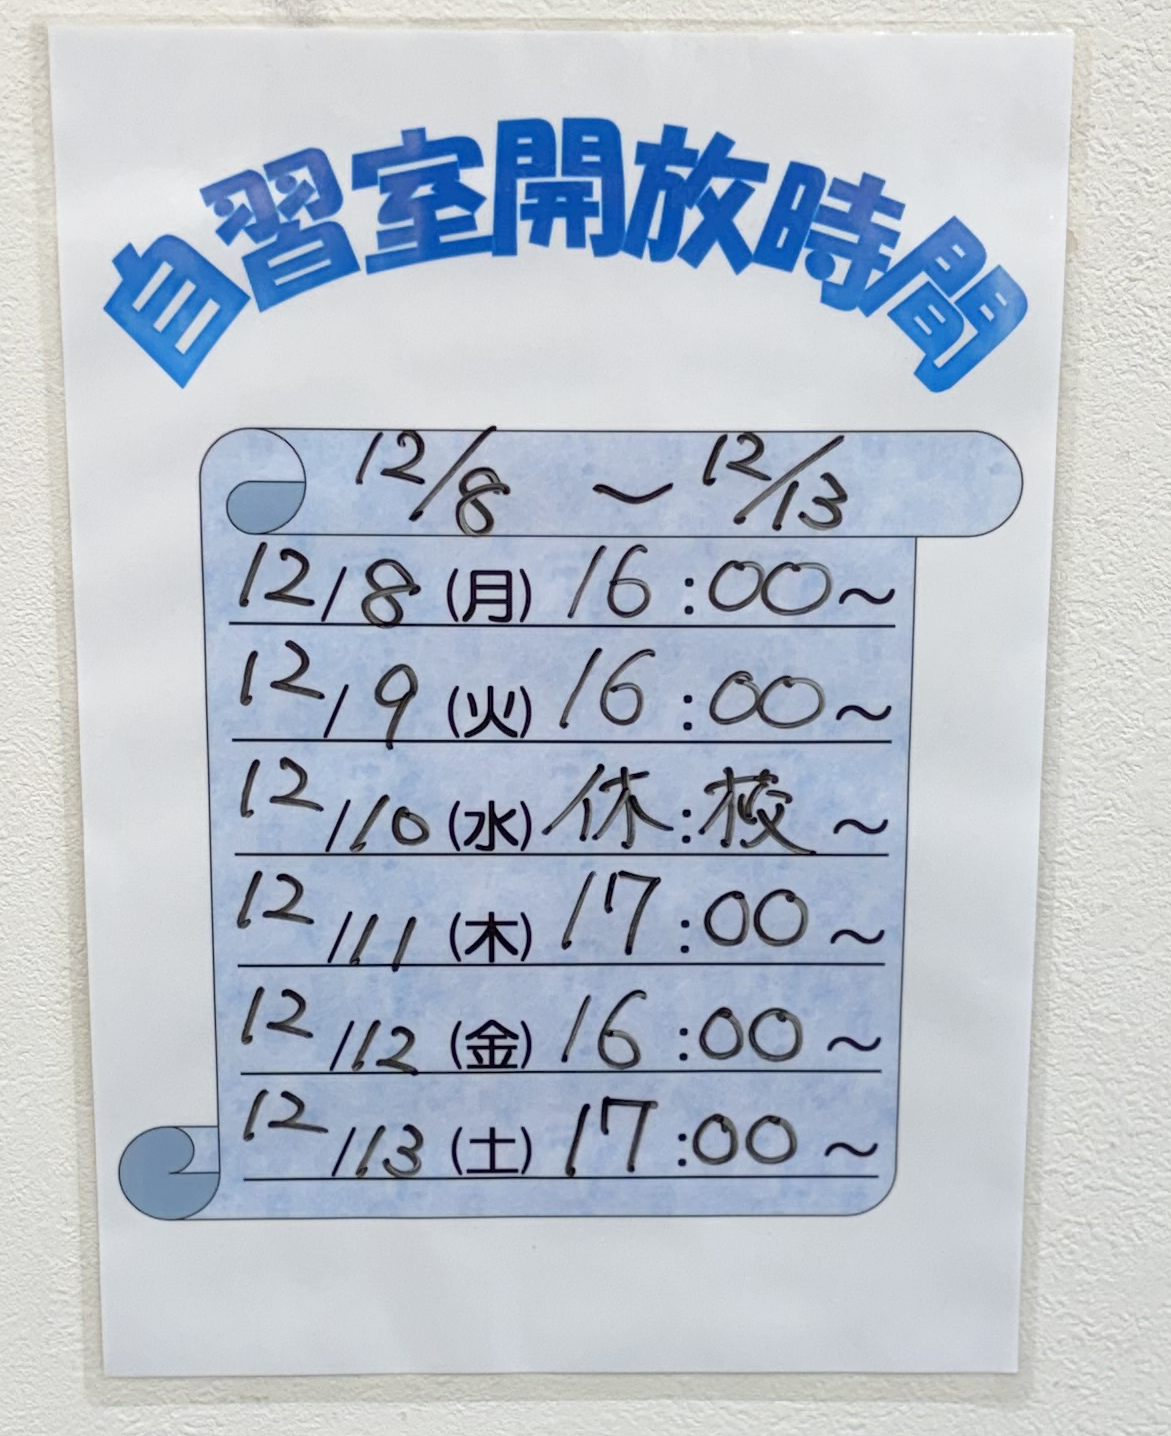 自習室開放時間
12/8 ～ 12/13
12/8 (月) 16:00～
12/9 (火) 16:00～
12/10 (水) 休:校～
12/11 (木) 17:00～
12/12 (金) 16:00～
12/13 (土) 17:00～